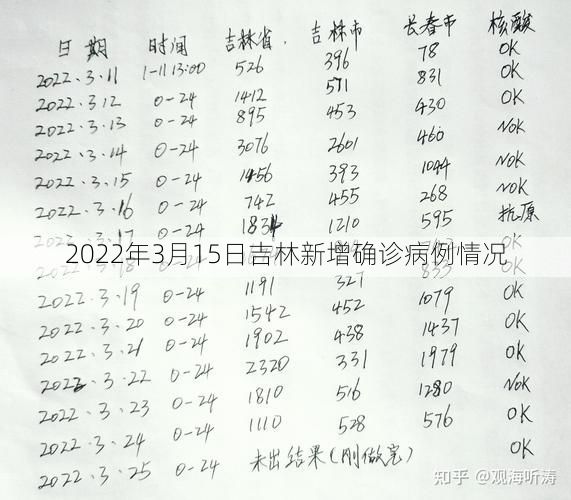 日期 时间 吉林省. 吉林市 长春市 核酸
2022.3.11 1-11 13:00 526 396 78 OK
2022.3.12 0-24 1412 831 OK
2022.3.13 0-24 895 453 430 OK
2022.3.14 0-24 3076 2601 460 NoK
2022.3.15 0-24 1456 393 1044 NoK
2022.3.16 0-24 742 455 268 NoK
2022.3.17 0-24 1834 1210 595 抗原
2022年3月15日吉林新增确诊病例情况
OK
2022.3.19 0-24 1191 327 833 OK
2022.3.20 0-24 1542 452 1079 OK
2022.3.21 0-24 1902 438 1437 OK
2022.3.22 0-24 2320 331 1979 OK
2022.3.23 0-24 1810 516 1280 NoK
2022.3.24 0-24 1110 528 576 OK
2022.3.25 0-24 未出结果(刚做完) OK
知乎 @观海听涛